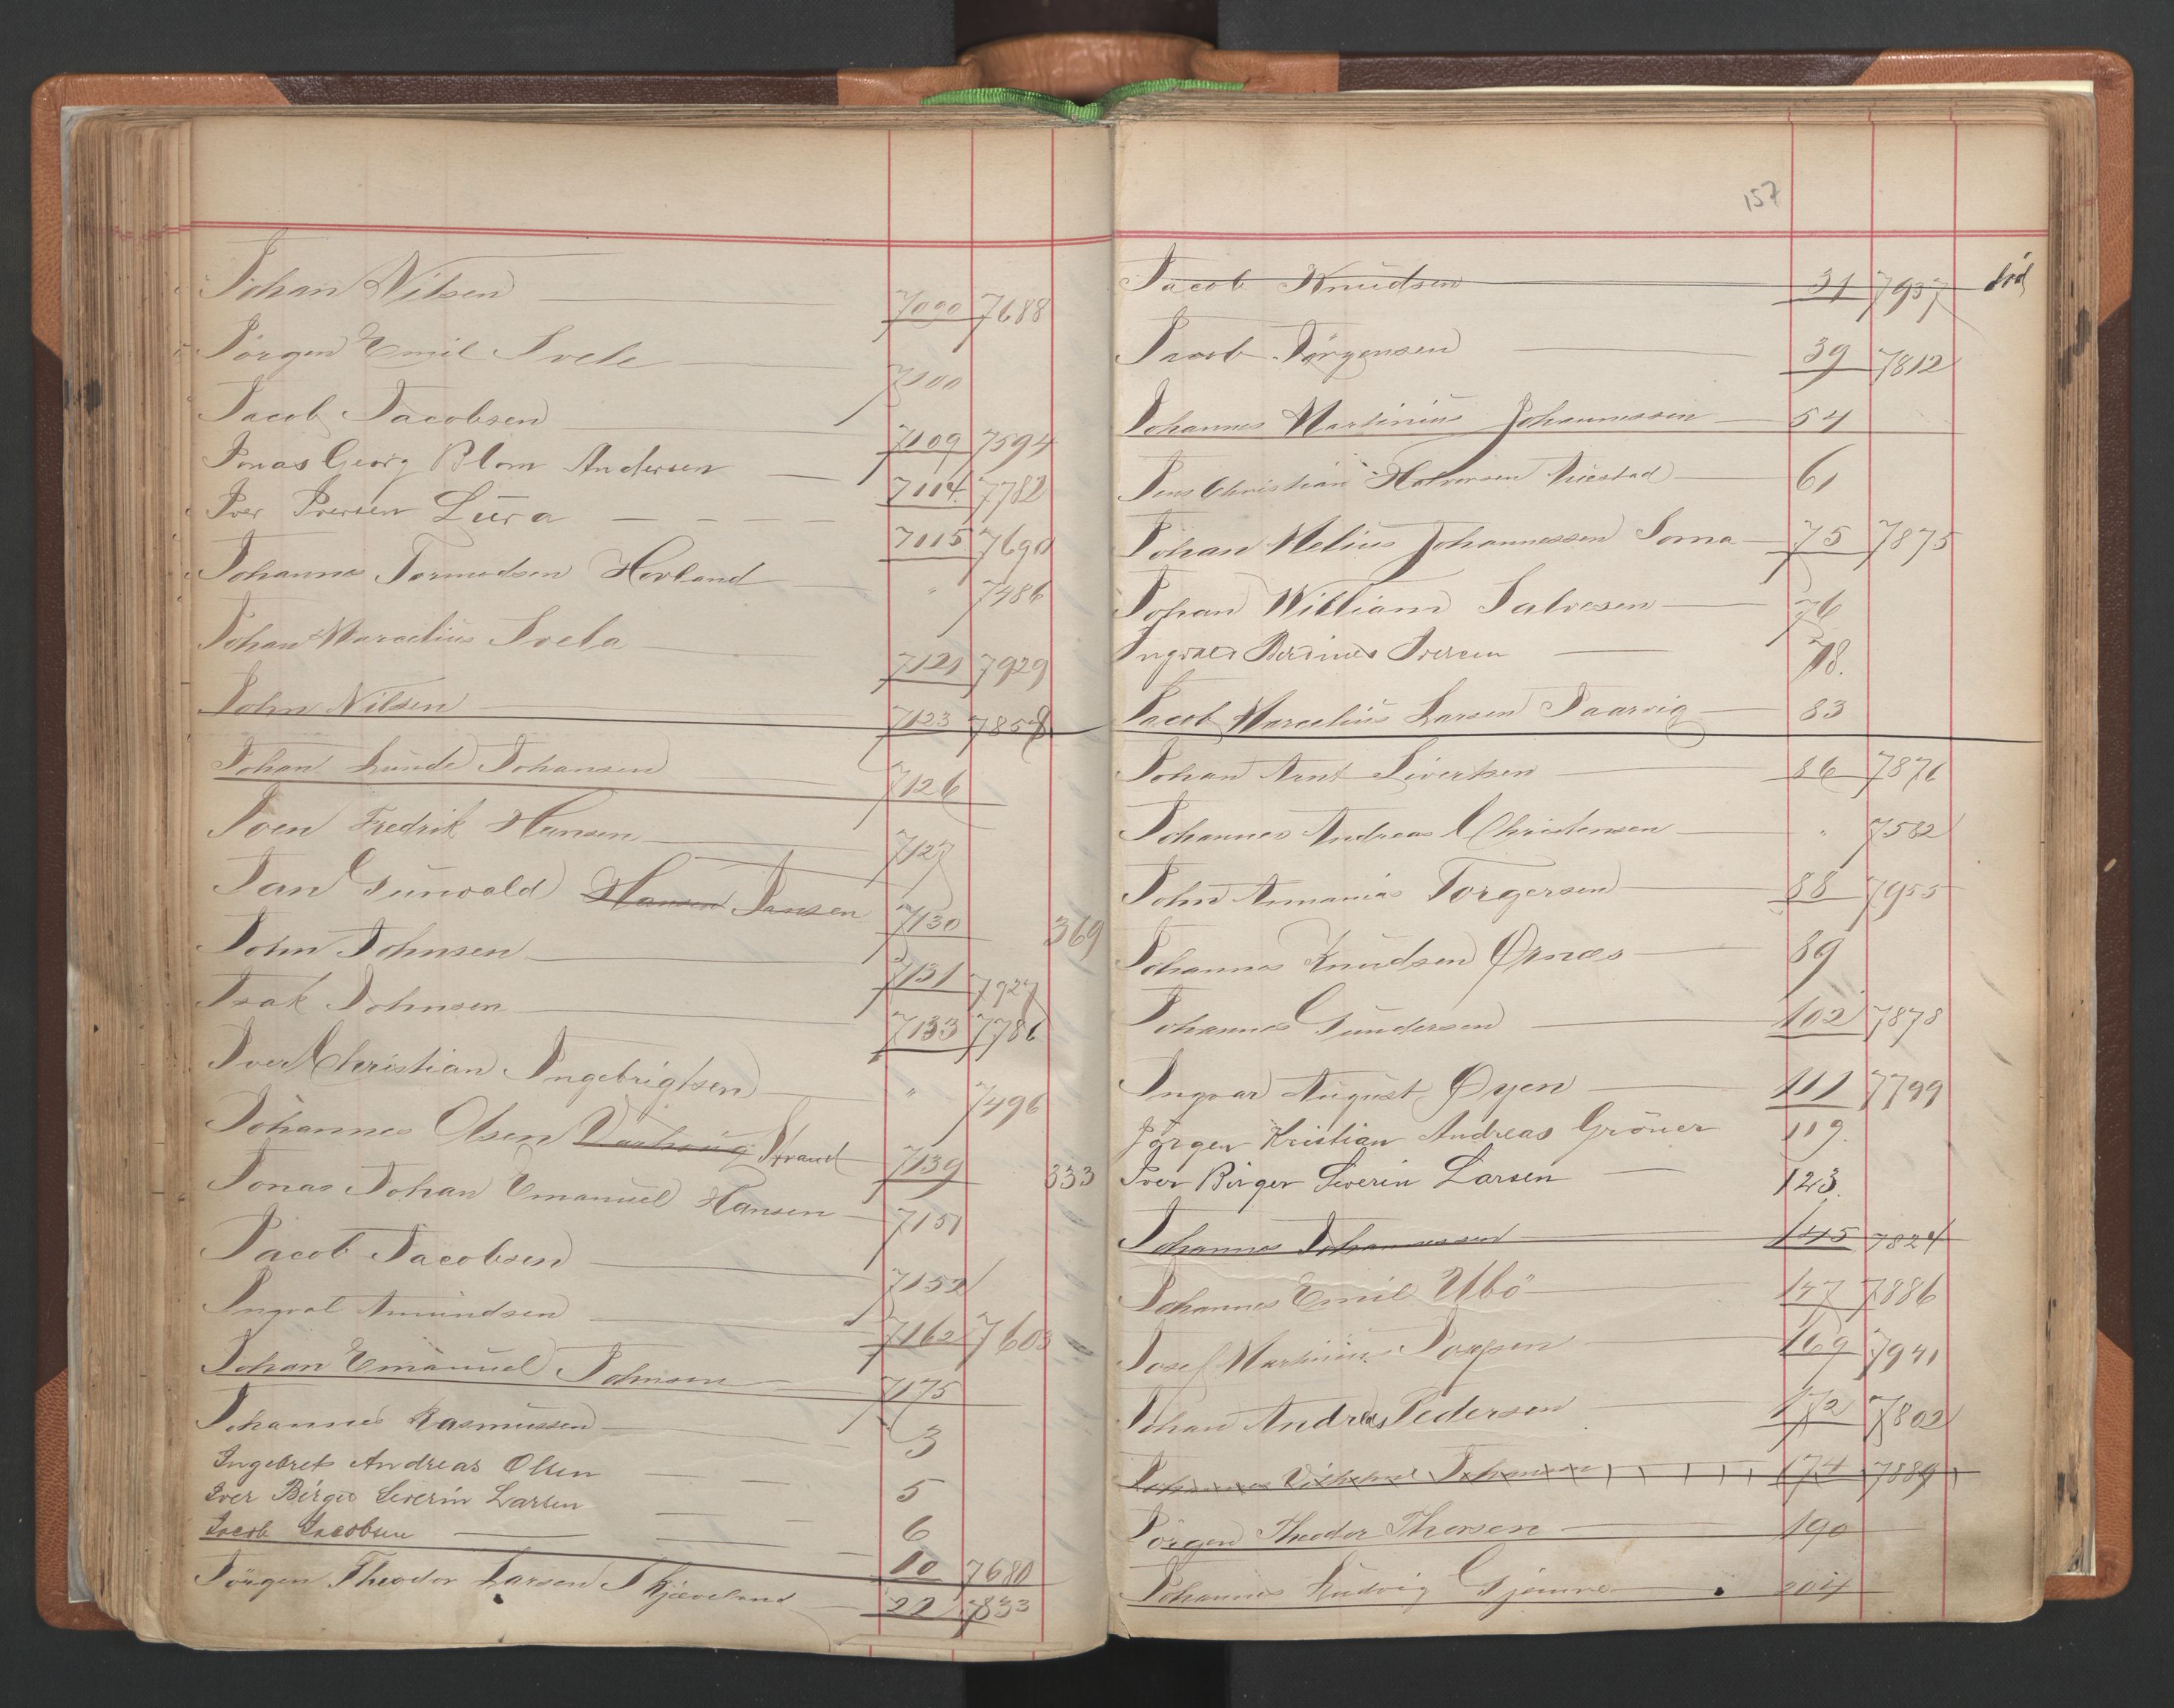 Johan Nilsen 7090 7688
Jörgen Emil Svele 7100
Jacob Jacobsen 7109 7594
Jonas Georg Blom Andersen 7114 7782
Iver Iversen Lura 7115 7690
Johannes Tormodsen Hovland " 7486
Johan Marcelius Svela 7121 7929
John Nilsen 7123 7858
Johan Lunde Johansen 7126
Iven Fredrik Hansen 7127
Jan Gunvald Hansen Jansen 7130 369
John Johnsen 7131 7927
Isak Johnsen 7133 7786
Iver Christian Ingebrigtsen " 7496
Johannes Olsen Strand 7139 333
Jonas Johan Emanuel Hansen 7151
Jacob Jacobsen 7152
Ingval Amundsen 7162 7603
Johan Emanuel Johnsen 7175
Johannes Rasmussen 3
Ingebret Andreas Olsen 5
Iver Birger Severin Larsen 6
Jacob Jacobsen 10 7680
Jörgen Theodor Larsen Skjæveland 22 7833
157
Jacob Knudsen 31 7937 död
Jacob Jörgensen 39 7812
Johannes Martinius Johannessen 54
Jens Christian Halvorsen Auestad 61
Johan Melius Johannessen Soma 75 7875
Johan William Salvesen 76
Ingvald Berdines Iversen 78.
Jacob Marcelius Larsen Taarvig 83
Johan Arnt Sivertsen 86 7876
Johannes Andreas Christensen " 7582
John Annanias Torgersen 88 7955
Johannes Knudsen Ørnæs 89
Johannes Gundersen 102 7878
Ingvar August Øyen 111 7799
Jørgen Kristian Andreas Gröner 119.
Iver Birger Severin Larsen 123.
Johannes Johannessen 145 7824
Johannes Emil Ubö 147 7886
Josef Martinius 169 7941
Johan Andreas Pedersen 172 7802
Johannes Vilhelm Johansen 174 7889
Jörgen Theodor Thorsen 190
Johannes Ludvig Gjemre 204